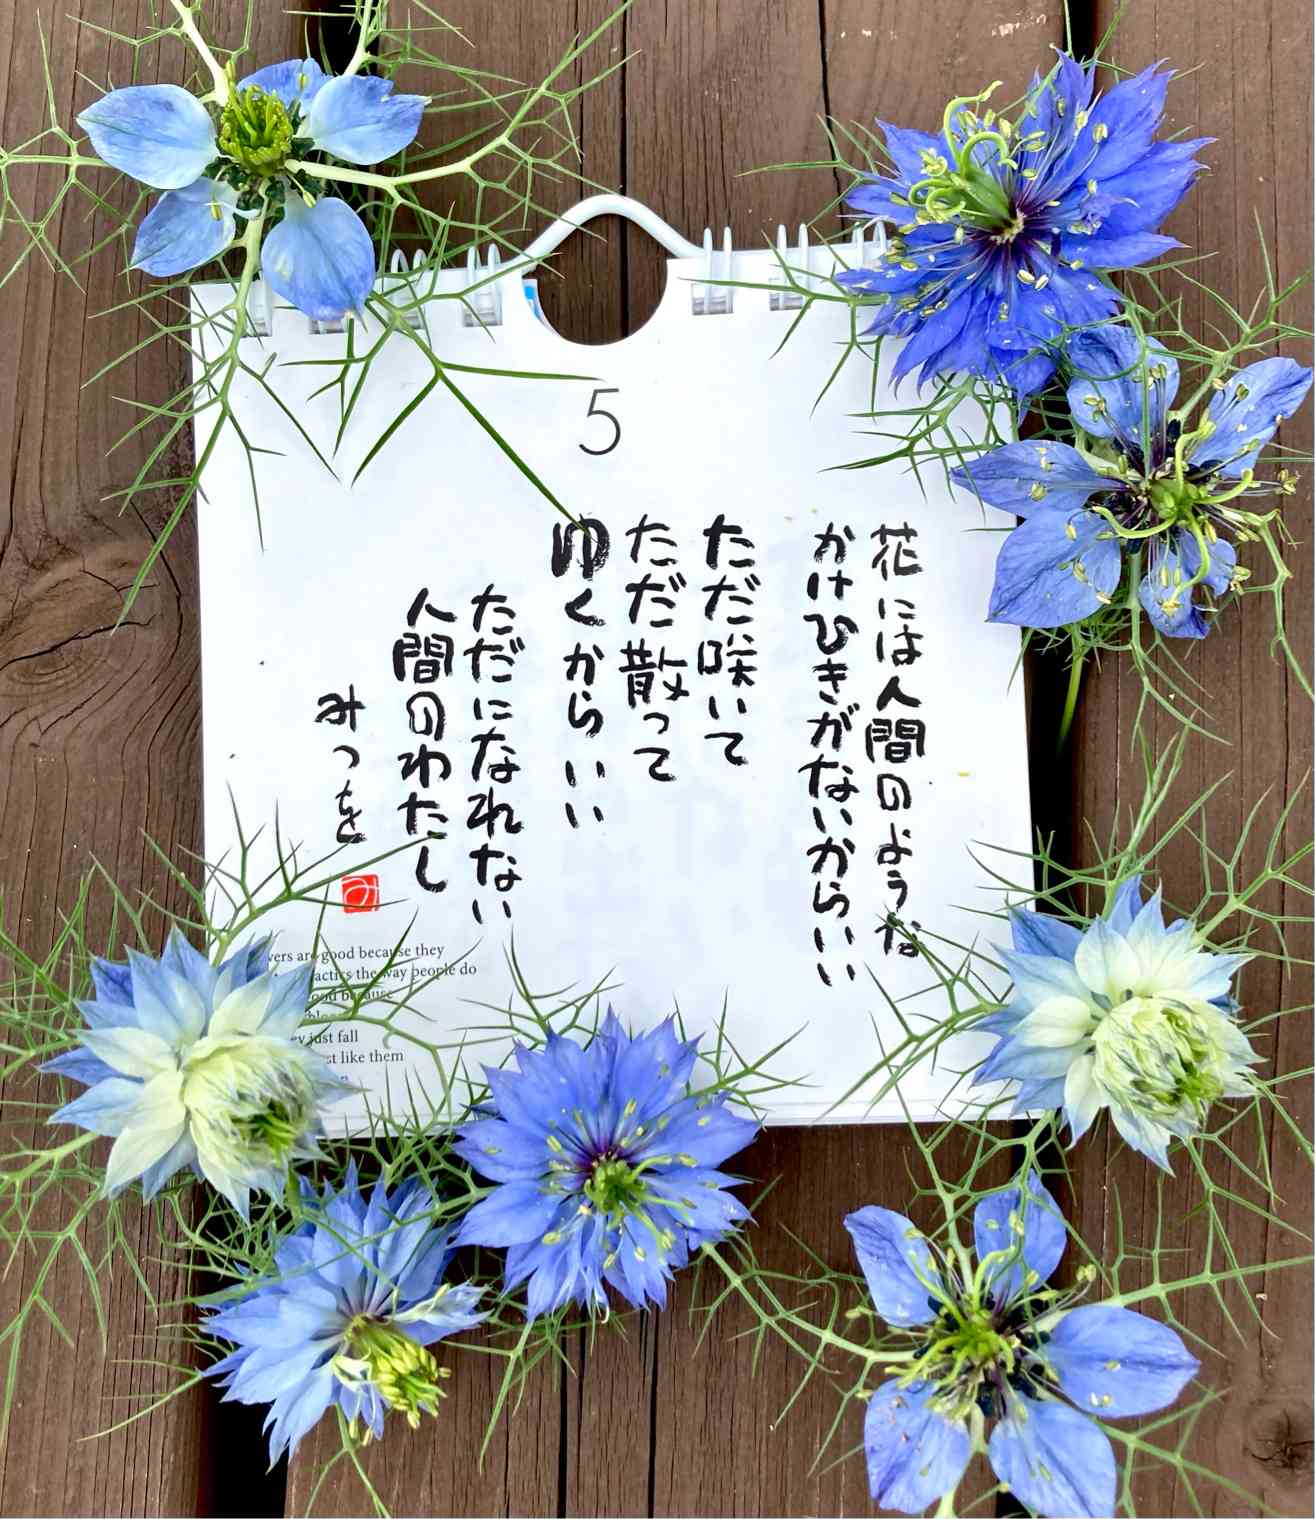 5
花には人間のような
かけひきがないからいい
ただ咲いて
ただ散って
ゆくからいい
ただになれない
人間のわたし
みつを
み
are good because they
the way people do
good because
just fall
like them